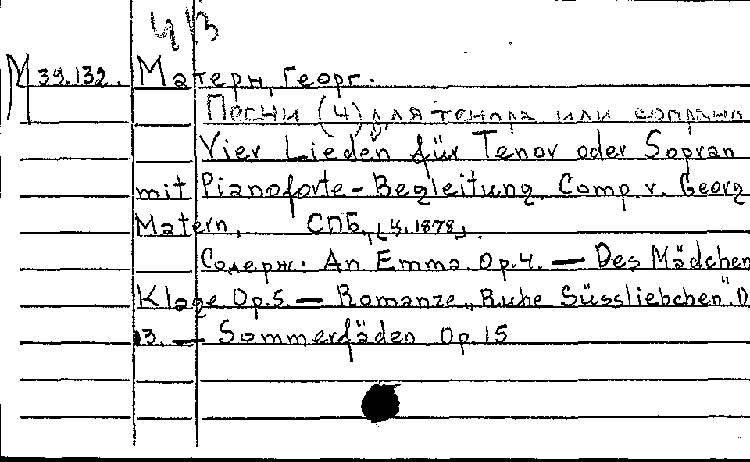 ЧВ
М 39.132. Матерн, Георг.
Песни (4) для тенора или сопрано
Vier Lieder für Tenor oder Sopran
mit Pianoforte-Begleitung. Comp v. Georg
Matern, СПБ, [ц. 1878].
Содерж: An Emma. Op.4. — Des Mädchen
Klage Op.5 — Romanze "Ruhe Süssliebchen". O
3. — Sommerfäden Op.15